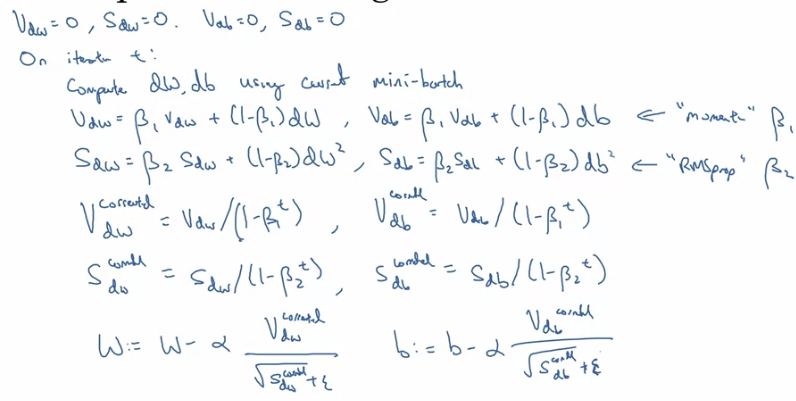 V_dw = 0, S_dw = 0. V_db = 0, S_db = 0
On iteration t:
Compute dW, db using current mini-batch
V_dw = β₁ V_dw + (1-β₁) dW , V_db = β₁ V_db + (1-β₁) db ← "momentum" β₁
S_dw = β₂ S_dw + (1-β₂) dW² , S_db = β₂ S_db + (1-β₂) db² ← "RMSprop" β₂
V_dw^corrected = V_dw / (1-β₁^t) , V_db^corrected = V_db / (1-β₁^t)
S_dw^corrected = S_dw / (1-β₂^t) , S_db^corrected = S_db / (1-β₂^t)
W := W - α V_dw^corrected / (√S_dw^corrected + ε) b := b - α V_db^corrected / (√S_db^corrected + ε)